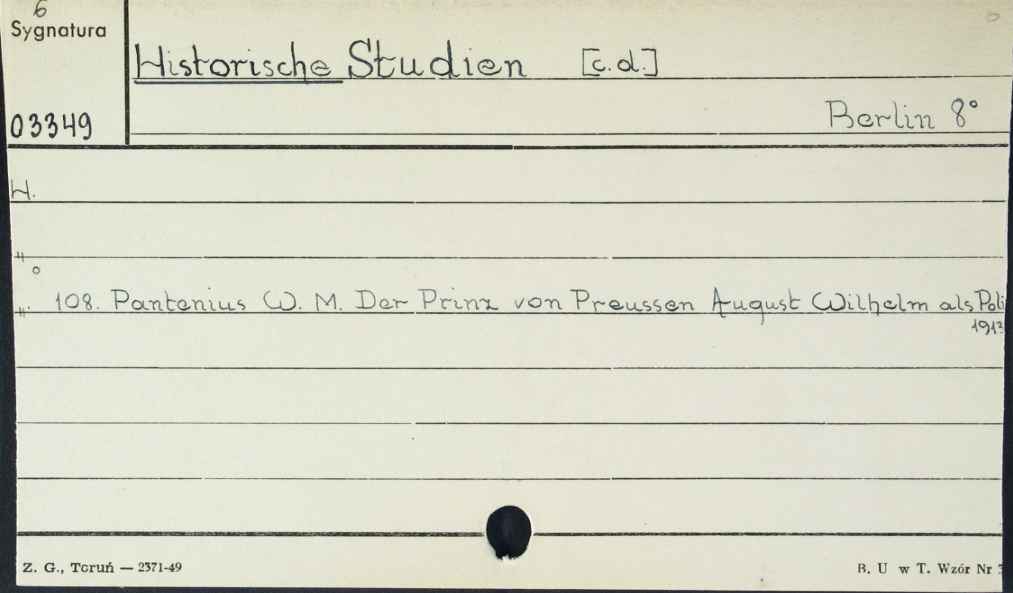 6
Sygnatura
Historische Studien [c.d.]
03349
Berlin 8°
H.
108. Pantenius W. M. Der Prinz von Preussen August Wilhelm als Poli
1913
Z. G., Toruń — 2371-49
B. U w T. Wzór Nr 3